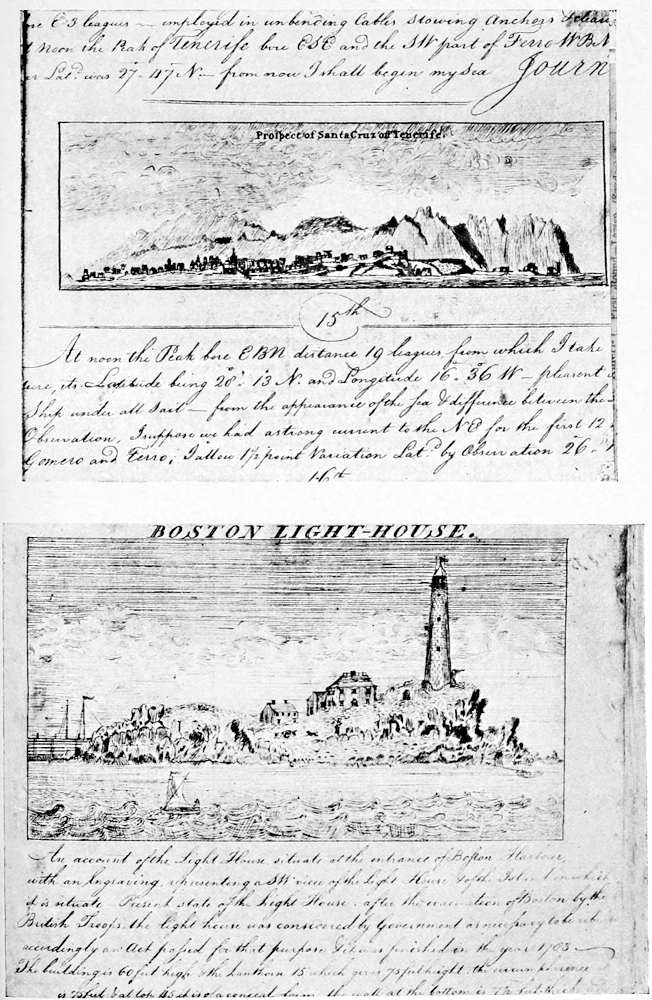 E 3 leagues — employed in unbending Cables Stowing Anchors & clear
Noon the Peak of Tenerife bore ESE and the SW part of Ferro WBN
Lat.d was 27.47 N — from now I shall begin my Sea Journ
Prospect of Santa Cruz off Tenerife.
15th
At noon the Peak bore EBN distance 19 leagues from which I take
its Latitude being 28°. 13 N. and Longitude 16. 36 W — pleasent
Ship under all Sail — from the appearance of the Sea & difference between the
Observation, I suppose we had a strong current to the NE for the first 12
Gomero and Ferro; I allow 1½ point Variation Lat.d by Observation 26.
16th
BOSTON LIGHT-HOUSE.
An account of the Light House situate at the entrance of Boston Harbour,
with an Engraving, representing a SW view of the Light House & of the Island on which
it is situate Present state of the Light House. after the evacuation of Boston by the
British Troops, the light house was considered by Government as necessary to be
accordingly an Act passed for that purpose & it was finished in the year 1783 —
The building is 60 feet high & the lanthorn 15 which gives 75 feet hight. the circumference
is feet & at top 45 it is of a conical form the wall at the bottom is 7½